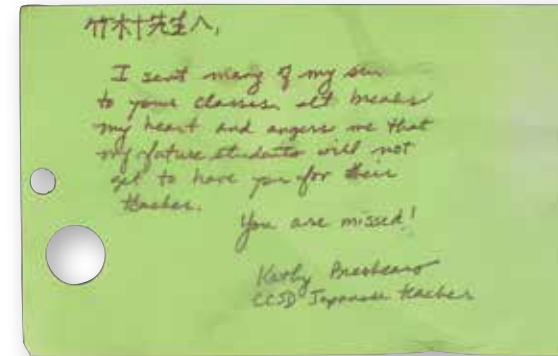 竹村先生へ,
I sent many of my
to your classes. It breaks
my heart and angers me that
my future students will not
get to have you for their
teacher.
You are missed!
Kathy
CCSD Japanese teacher